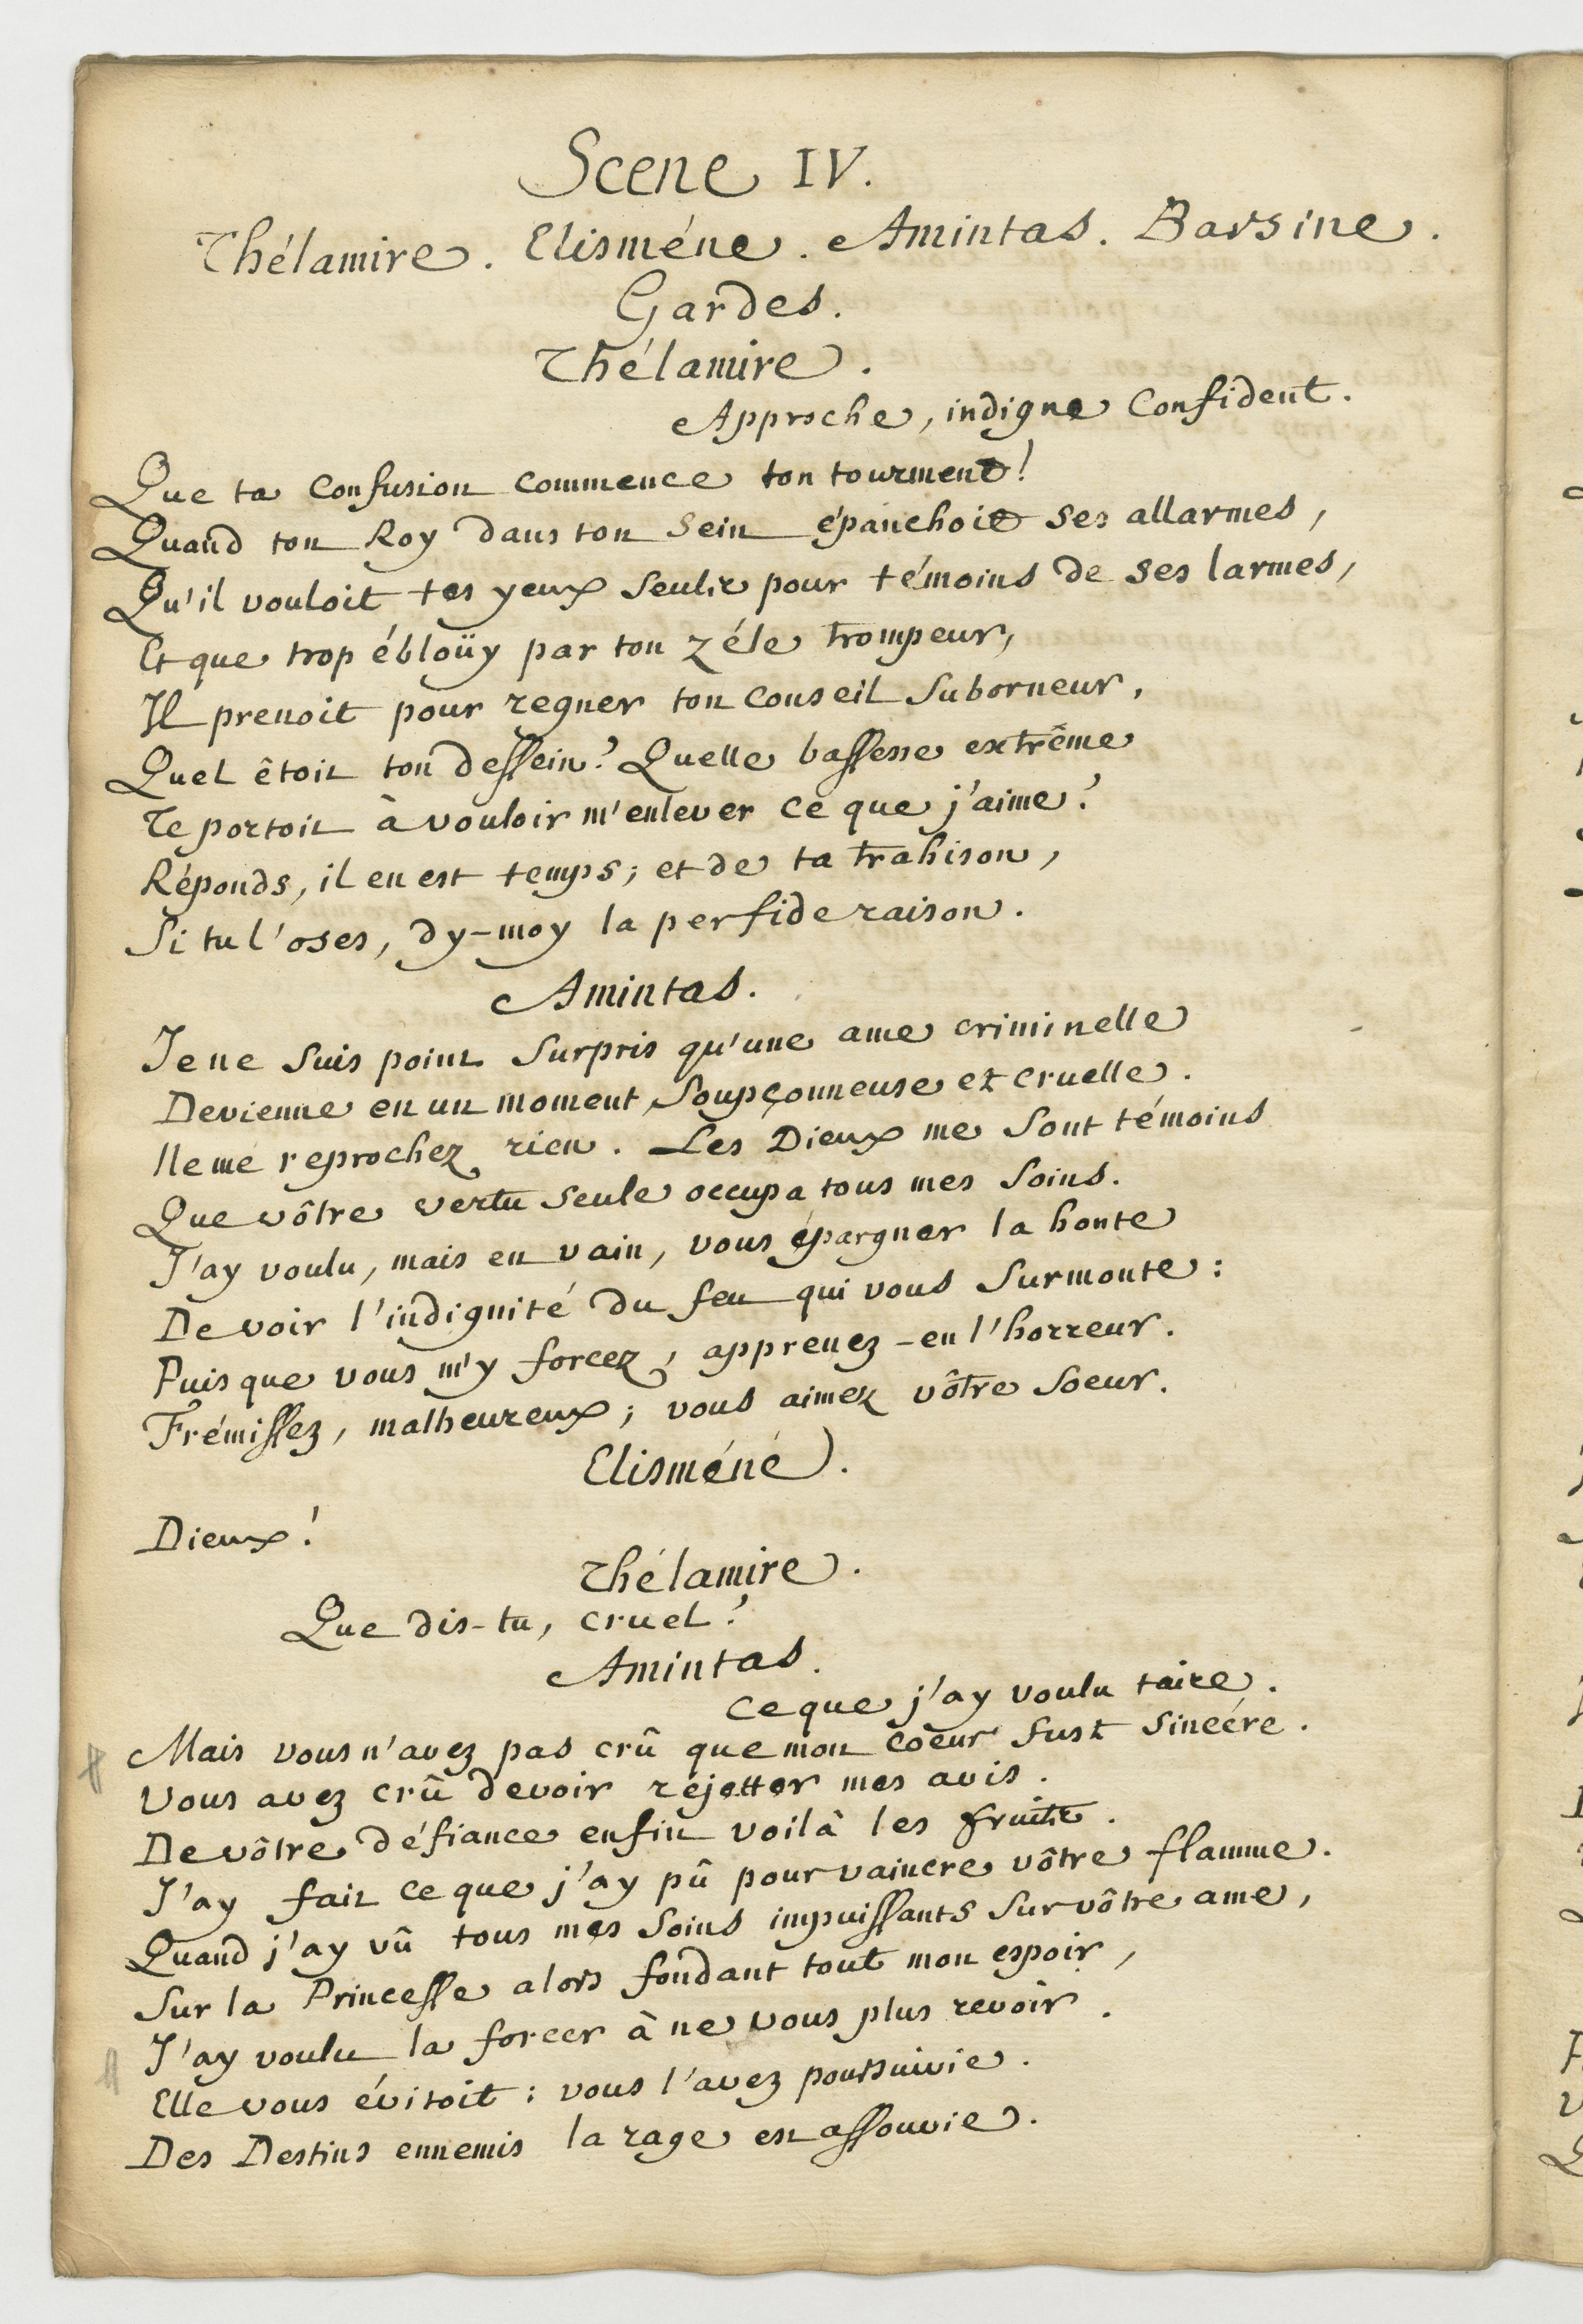 Scene IV.
Thélamire. Elisméne. Amintas. Barsine.
Gardes.
Thélamire.
Approche, indigne Confident.
Que ta Confusion commence ton tourment!
Quand ton Roy dans ton Sein épanchoit ses allarmes,
Qu'il vouloit tes yeux Seuls pour témoins de ses larmes,
Et que trop ébloüy par ton zéle trompeur,
Il prenoit pour regner ton Conseil Suborneur,
Quel êtoit ton dessein? Quelle bassesse extrême
Te portoit à vouloir m'enlever ce que j'aime?
Réponds, il en est temps; et de ta trahison,
Si tu l'oses, dy-moy la perfide raison.
Amintas.
Je ne Suis point Surpris qu'une ame criminelle
Devienne en un moment Soupçonneuse et cruelle.
Ne me reprochez rien. Les Dieux me Sont témoins
Que vôtre vertu Seule occupa tous mes Soins.
J'ay voulu, mais en vain, vous épargner la honte
De voir l'indignité du feu qui vous Surmonte:
Puisque vous m'y forcez, apprenez-en l'horreur.
Frémissez, malheureux; vous aimez vôtre Soeur.
Elisméné.
Dieux!
Thélamire.
Que dis-tu, cruel?
Amintas.
Ce que j'ay voulu taire.
Mais vous n'avez pas crû que mon Coeur fust Sincére.
Vous avez crû devoir rejetter mes avis.
De vôtre défiance enfin voilà les fruits.
J'ay fait ce que j'ay pû pour vaincre vôtre flamme.
Quand j'ay vû tous mes Soins impuissants Sur vôtre ame,
Sur la Princesse alors fondant tout mon espoir,
J'ay voulu la forcer à ne vous plus revoir.
Elle vous évitoit: vous l'avez poursuivie.
Des Destins ennemis la rage est assouvie.